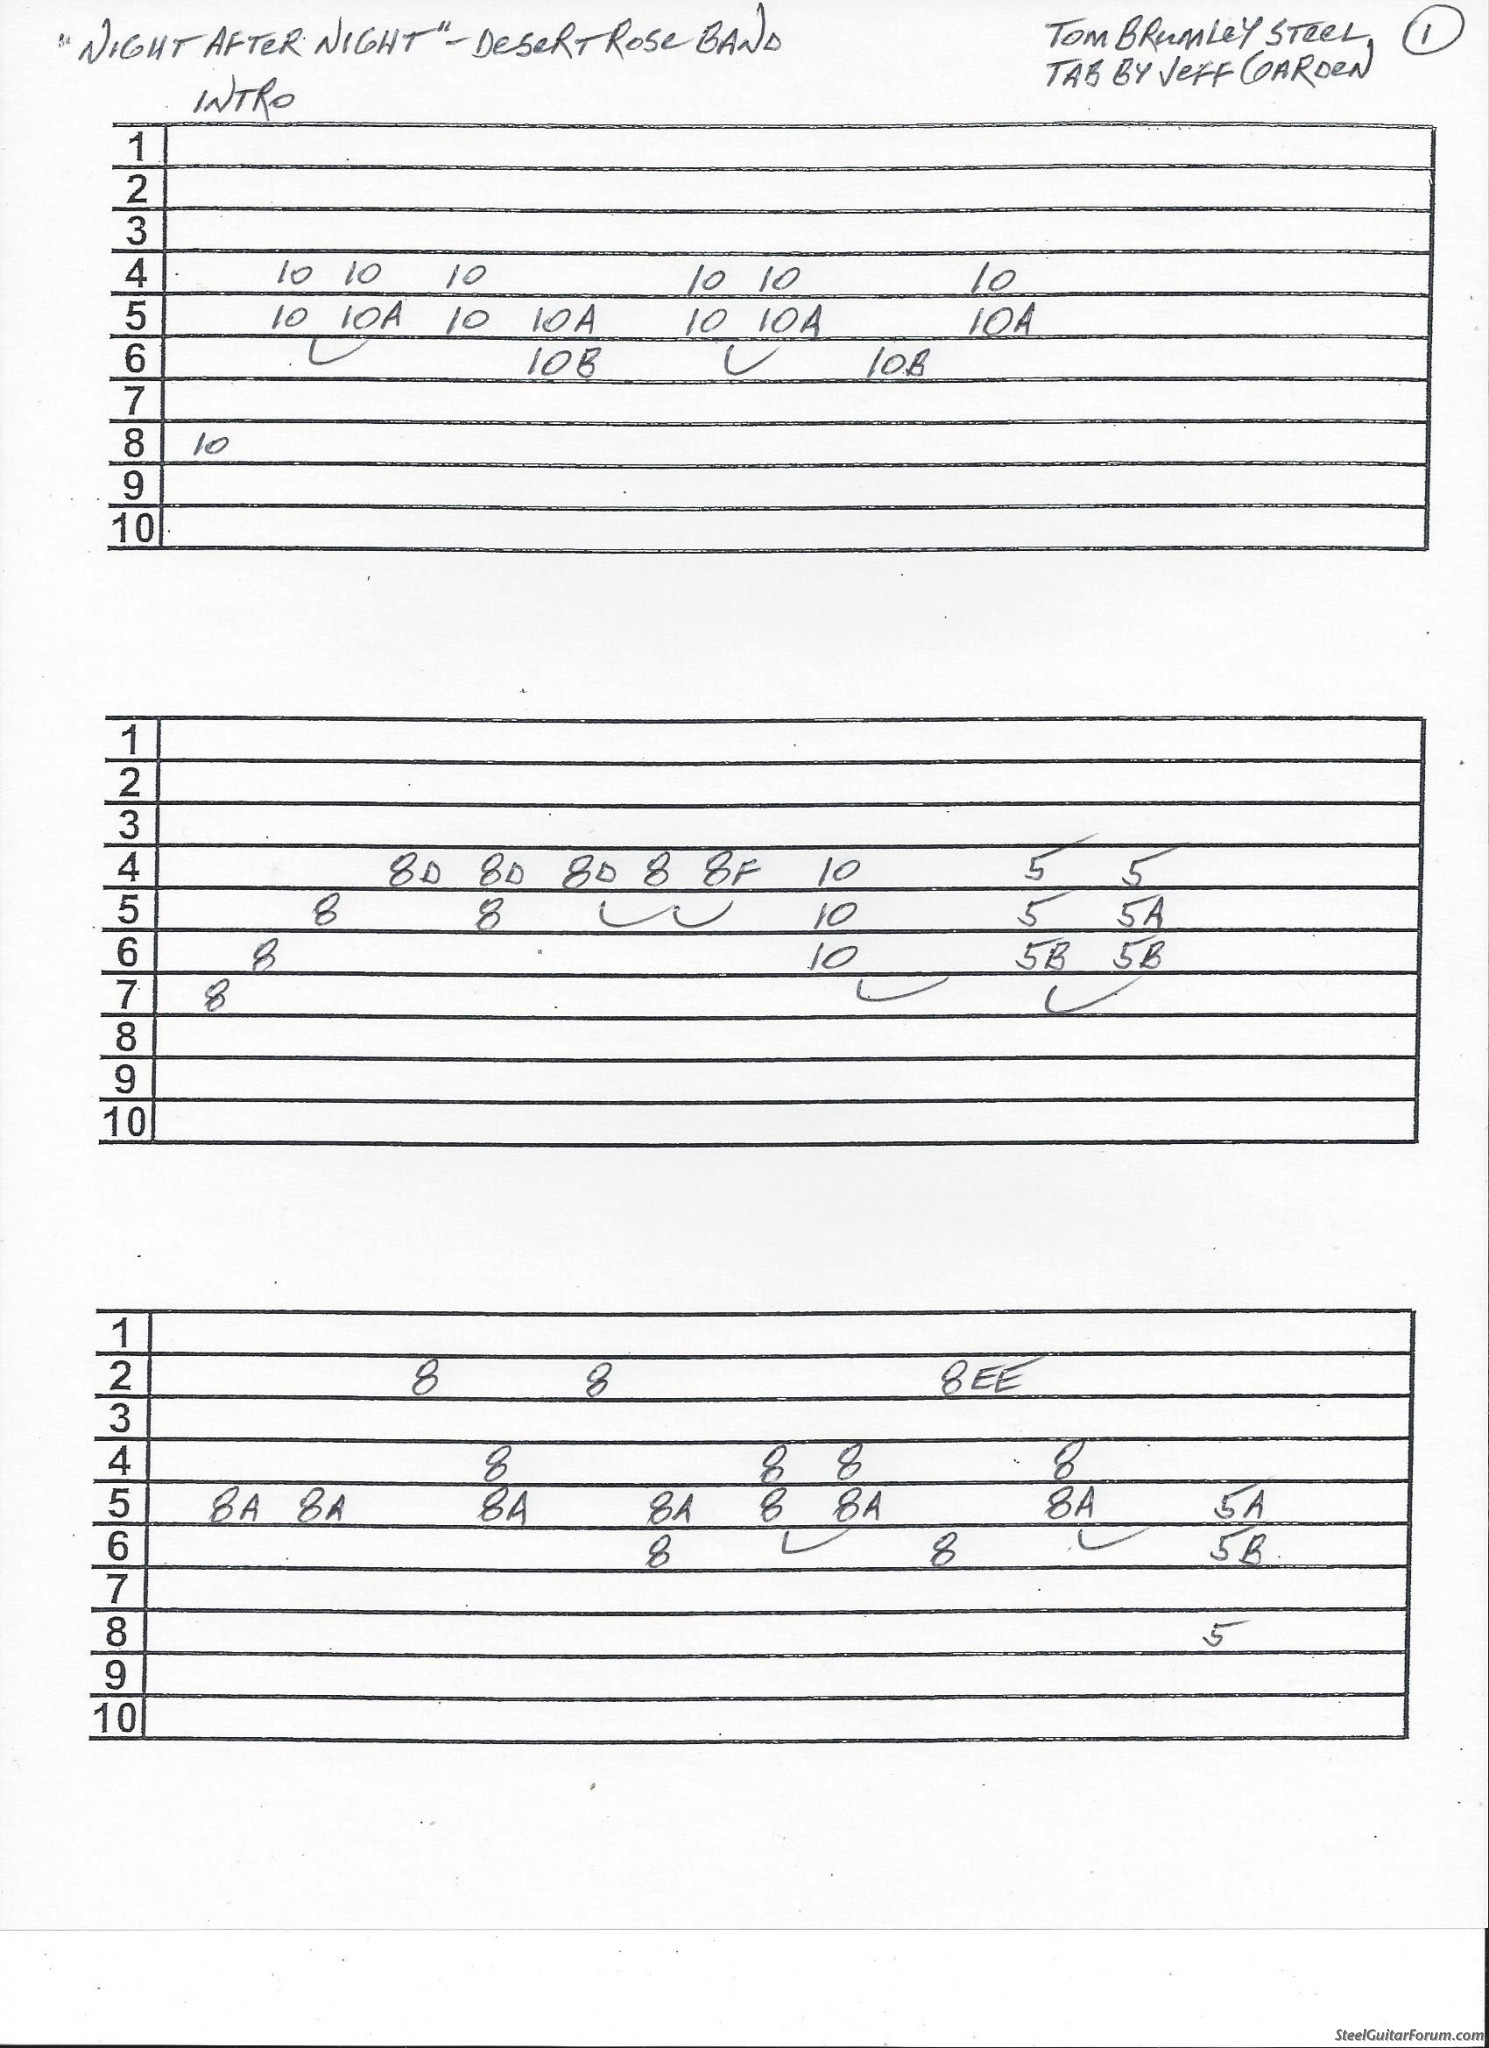 "NIGHT AFTER NIGHT" - DESERT ROSE BAND
TOM BRUMLEY STEEL
TAB BY JEFF GARDEN
1
INTRO
1
2
3
4 10 10 10 10 10 10
5 10 10A 10 10A 10 10A 10A
6 10B 10B
7
8 10
9
10
1
2
3
4 8D 8D 8D 8 8F 10 5 5
5 8 8 10 5 5A
6 8 10 5B 5B
7 8
8
9
10
1
2 8 8 8EE
3
4 8 8 8 8
5 8A 8A 8A 8A 8 8A 8A 5A
6 8 8 5B
7
8 5
9
10
SteelGuitarForum.com